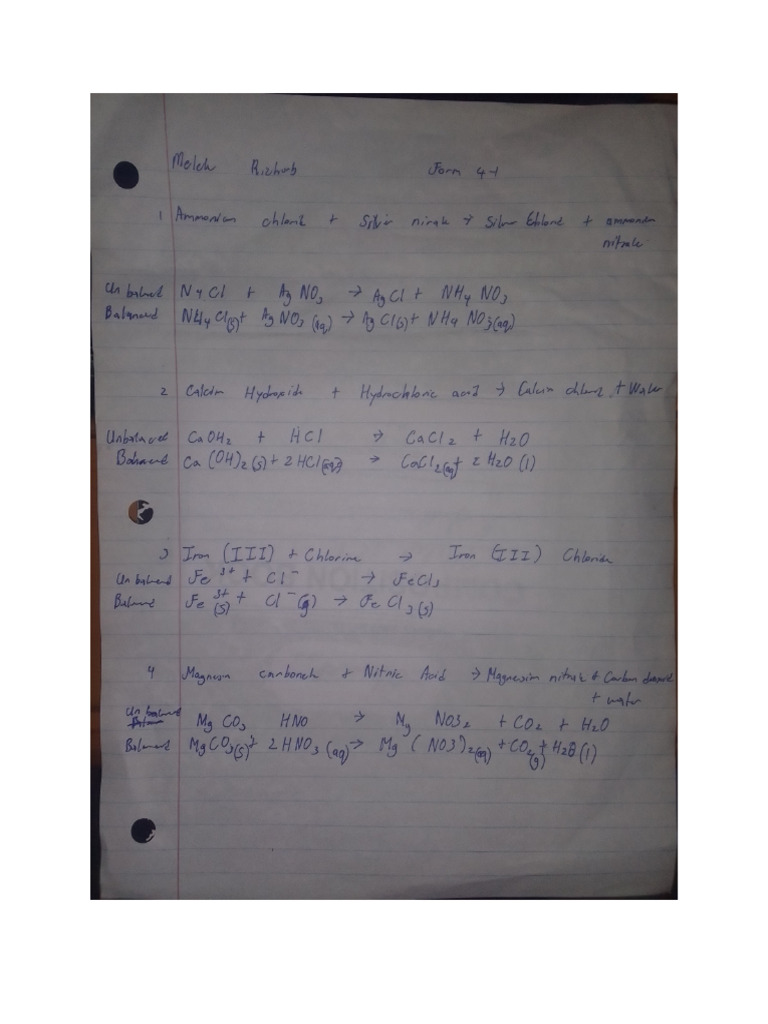 Form 4-1
1 Ammonium chloride + Silver nitrate → Silver Chloride + ammonium
nitrate
Unbalanced N4Cl + AgNO3 → AgCl + NH4 NO3
Balanced NH4Cl(s) + AgNO3 (aq) → AgCl(s) + NH4 NO3(aq)
2 Calcium Hydroxide + Hydrochloric acid → Calcium chloride + Water
Unbalanced CaOH2 + HCl → CaCl2 + H2O
Balanced Ca (OH)2 (s) + 2HCl(aq) → CaCl2(aq) + 2H2O (l)
3 Iron (III) + Chlorine → Iron (III) Chloride
Unbalanced Fe3+ + Cl- → FeCl3
Balanced Fe3+(s) + Cl-(g) → FeCl3(s)
4 Magnesium carbonate + Nitric Acid → Magnesium nitrate + Carbon dioxide
+ water
Unbalanced MgCO3 HNO → Mg NO32 + CO2 + H2O
Balanced MgCO3(s) + 2HNO3 (aq) → Mg (NO3)2(aq) + CO2(g) + H2O (l)